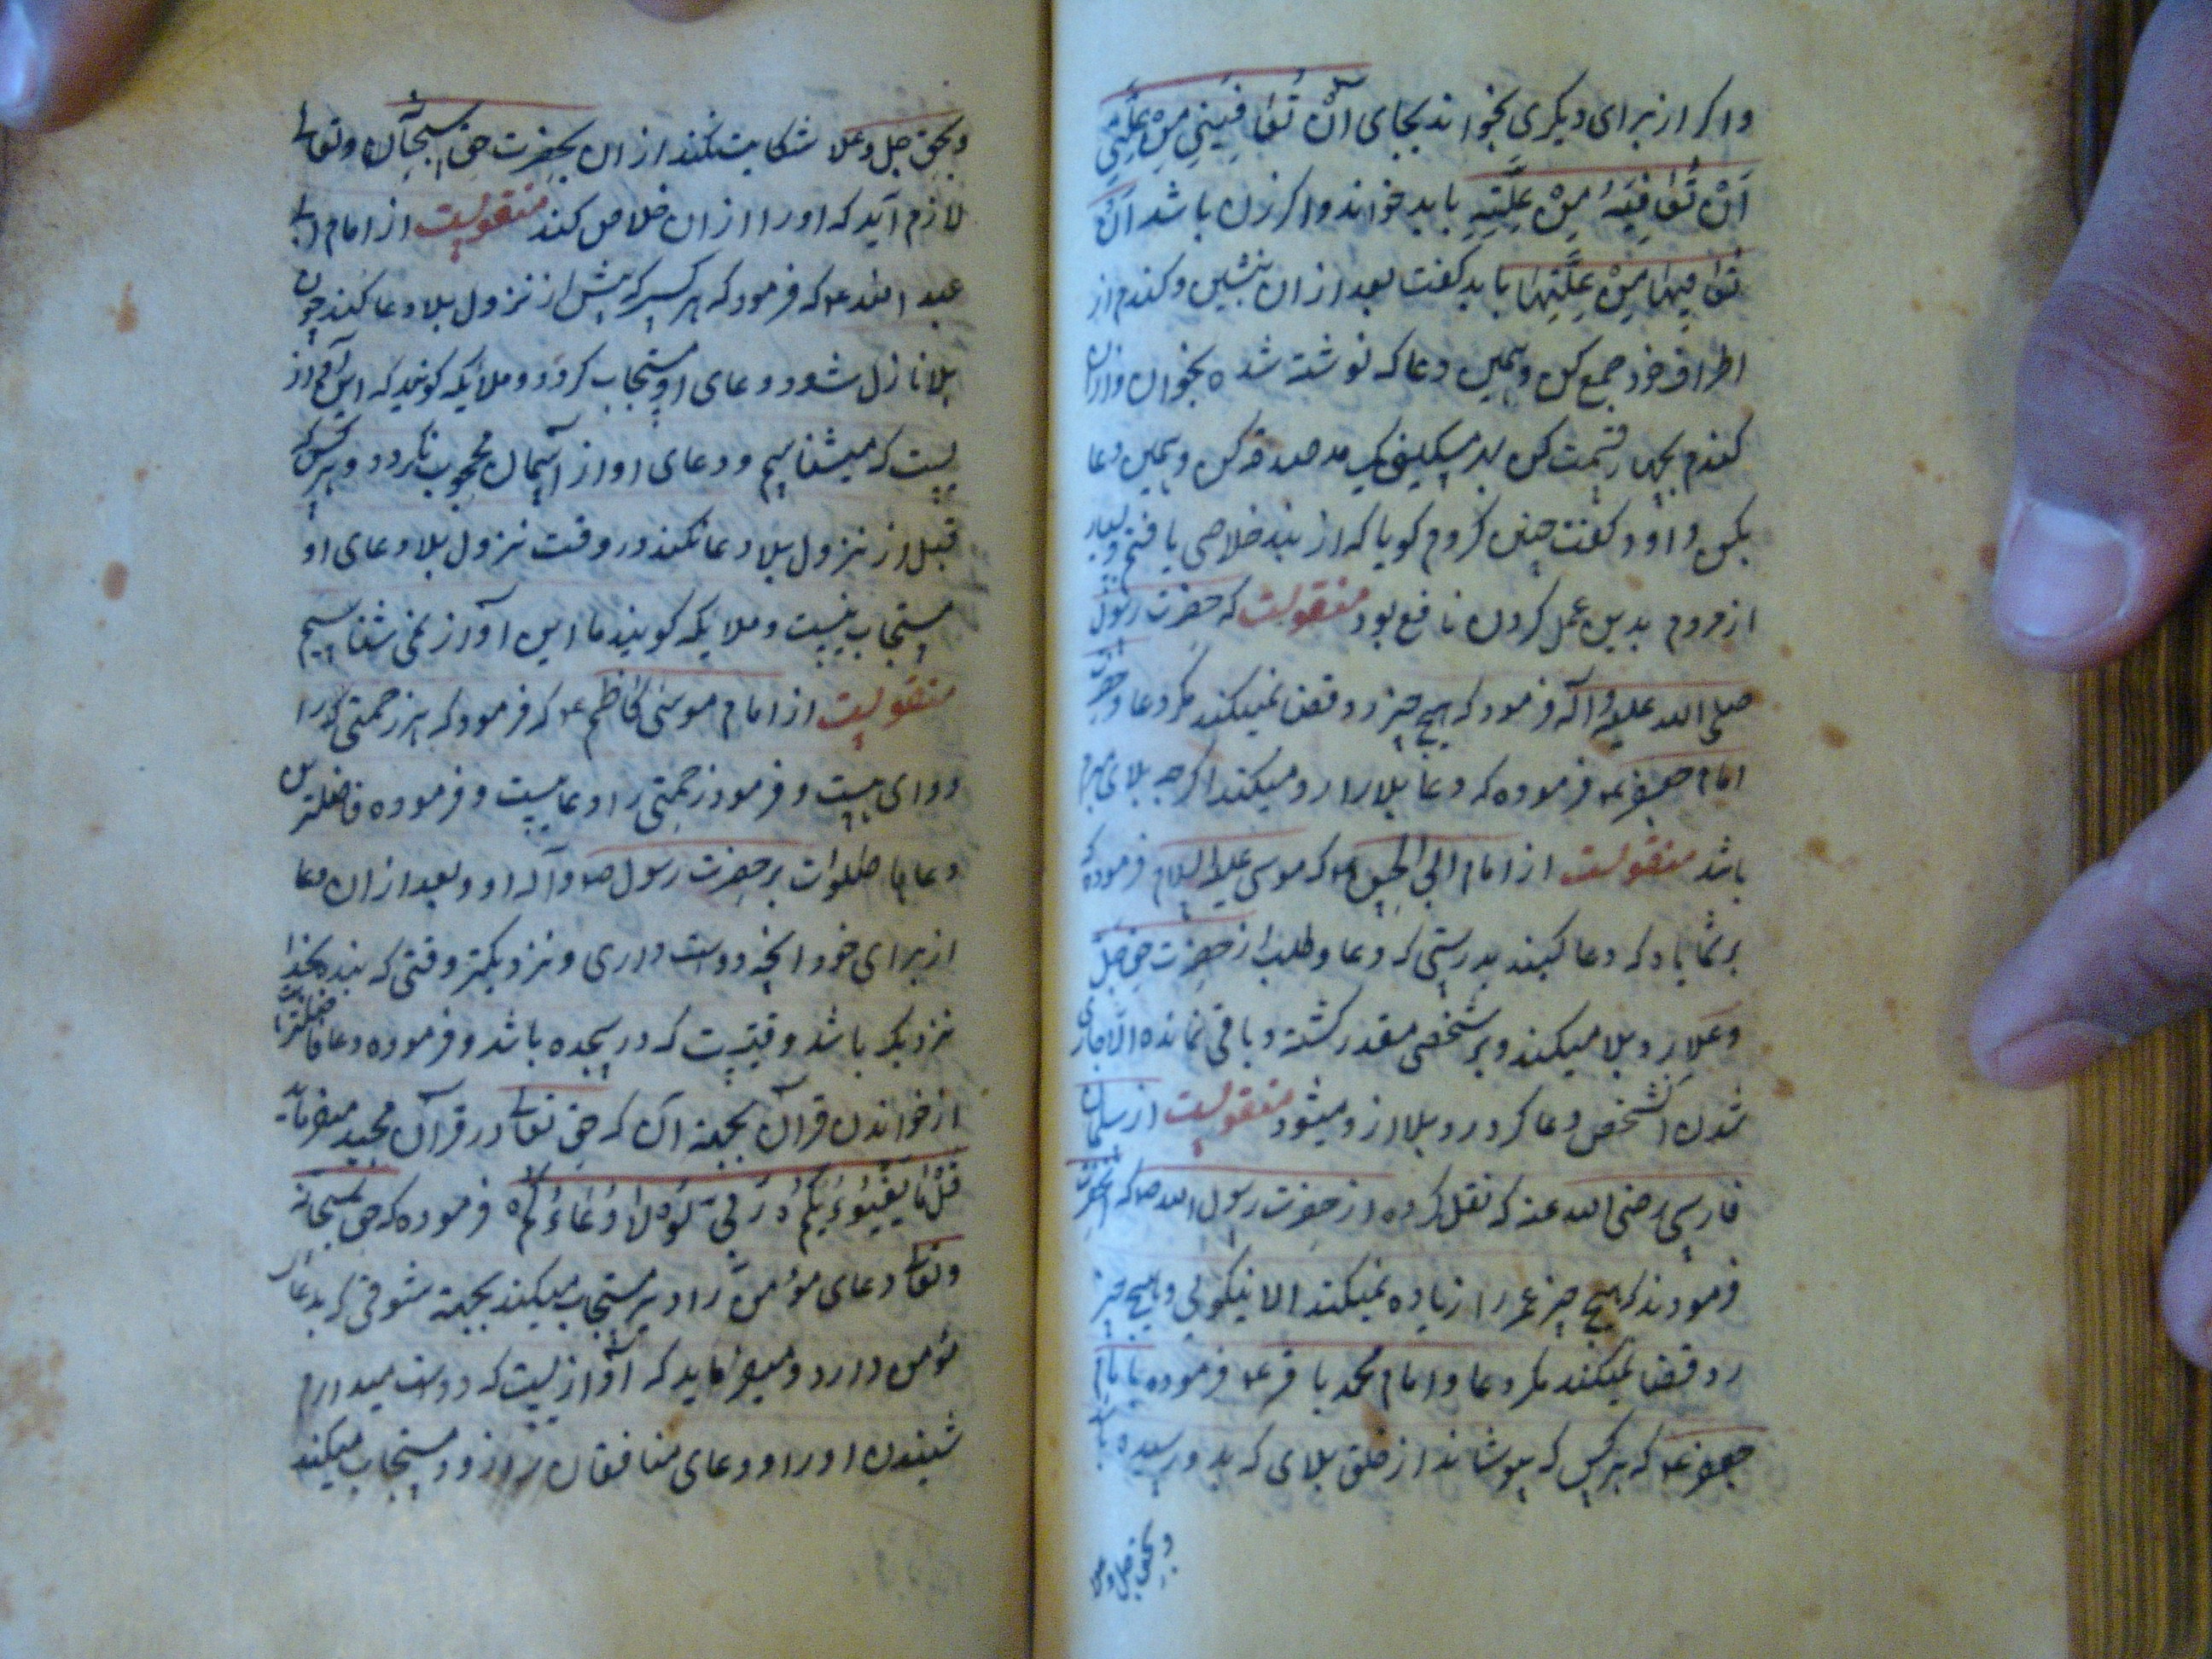 واکر از برای دیکری بخواند بجای اَنْ تُعٰافِیَنیِ مِنْ عِلَّتیِ
اَنْ تُعٰافِیَهُ مِنْ عِلَّتِهِ باید خواند واکر زن باشد اَنْ
تُعٰافِیهٰا مِنْ عِلَّتِهٰا باید کفت بعد از ان بنشین و کندم از
اطراف خود جمع کن و همین دعا که نوشته شده بخوان و ازان
کندم بچهار قسمت کن بهر مسکینی یک مد صدقه کن و همین دعا
بکن داود کفت چنین کردم کویا که از بند خلاصی یافتم و بسیار
از مردم بدین عمل کردن نافع بود منقولست که حضرت رسول
صلی الله علیه و آله فرمود که هیچ چیز رد قضا نمیکند مکر دعا و حضرت
امام جعفر ع فرموده که دعا بلا را رد میکند اکرچه بلای مبرم
باشد منقولست از امام ابی الحسن ع که موسی علیه السلام فرموده که
بر شما باد که دعا کنید بدرستی که دعا و طلب از حضرت حق جل
و علا رد بلا میکند و بر شخصی مقدر کشته و باقی نمانده الا جاری
شدن آنشخص دعا کرد رد بلا ازو میشود منقولست از سلمان
فارسی رضی الله عنه که نقل کرده از حضرت رسول الله ص که آنحضرت
فرمودند که هیچ چیز عمر را زیاده نمیکند الا نیکویی و هیچ چیز
رد قضا نمیکند مکر دعا و امام محمد باقر ع فرموده با امام
جعفر ع که هر کس که بپوشاند از خلق بلای که بدو رسیده باشد
و بحق جل و علا
و بحق جل و علا شکایت نکند از ان بحضرت حق سبحانه وتعالی
لازم آید که او را از ان خلاص کند منقولست از امام ابی
عبد الله ع که فرمود که هر کس که پیش از نزول بلا دعا کند چون
بلا نازل شود دعای او مستجاب کردد و ملائیکه کویند که این آواز
یست که میشناسیم و دعای او از آسمان محجوب نکردد و هر کس که
قبل از نزول بلا دعا نکند در وقت نزول بلا دعای او
مستجاب نیست و ملایکه کویند ما این آواز نمی شناسیم
منقولست از امام موسی کاظم ع که فرمود که هر زحمتی که را
دوای هست و فرمود زحمتی را دعا هست و فرموده فاضلترین
دعاها صلوات بر حضرت رسول ص و آله او و بعد از ان دعا
از برای خود انچه دوست داری و نزدیکتر وقتی که بنده بخدا
نزدیک باشد وقتیست که در سجده باشد و فرموده دعا فاضلتر است
از خواندن قرآن بجهة آن که حق تعالی در قرآن مجید میفرماید
قُلْ مٰا یَعْبَؤُا بِکُمْ رَبّیِ لَوْلٰا دُعٰاؤُکُمْ فرموده که حق سبحانه
وتعالی دعای مؤمن را دیر مستجاب میکند بجهة شوقی که بدعای
مؤمن دارد و میفرماید که آوازیست که دوست میدارم
شنیدن او را و دعای منافقان را زود مستجاب میکند